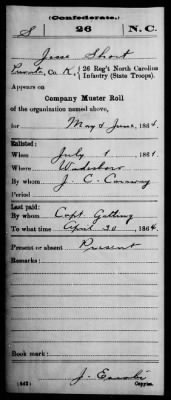 (Confederate.)
S 26 N. C.
Jesse Short
Private, Co. K, 26 Reg't North Carolina
Infantry (State Troops).
Appears on
Company Muster Roll
of the organization named above,
for May & June, 1864.
Enlisted:
When July 1, 1861.
Where Wadesboro
By whom J. C. Caraway
Period
Last paid:
By whom Capt.
To what time April 30, 1864.
Present or absent Present
Remarks:
Book mark:
(642) J. Copyist.